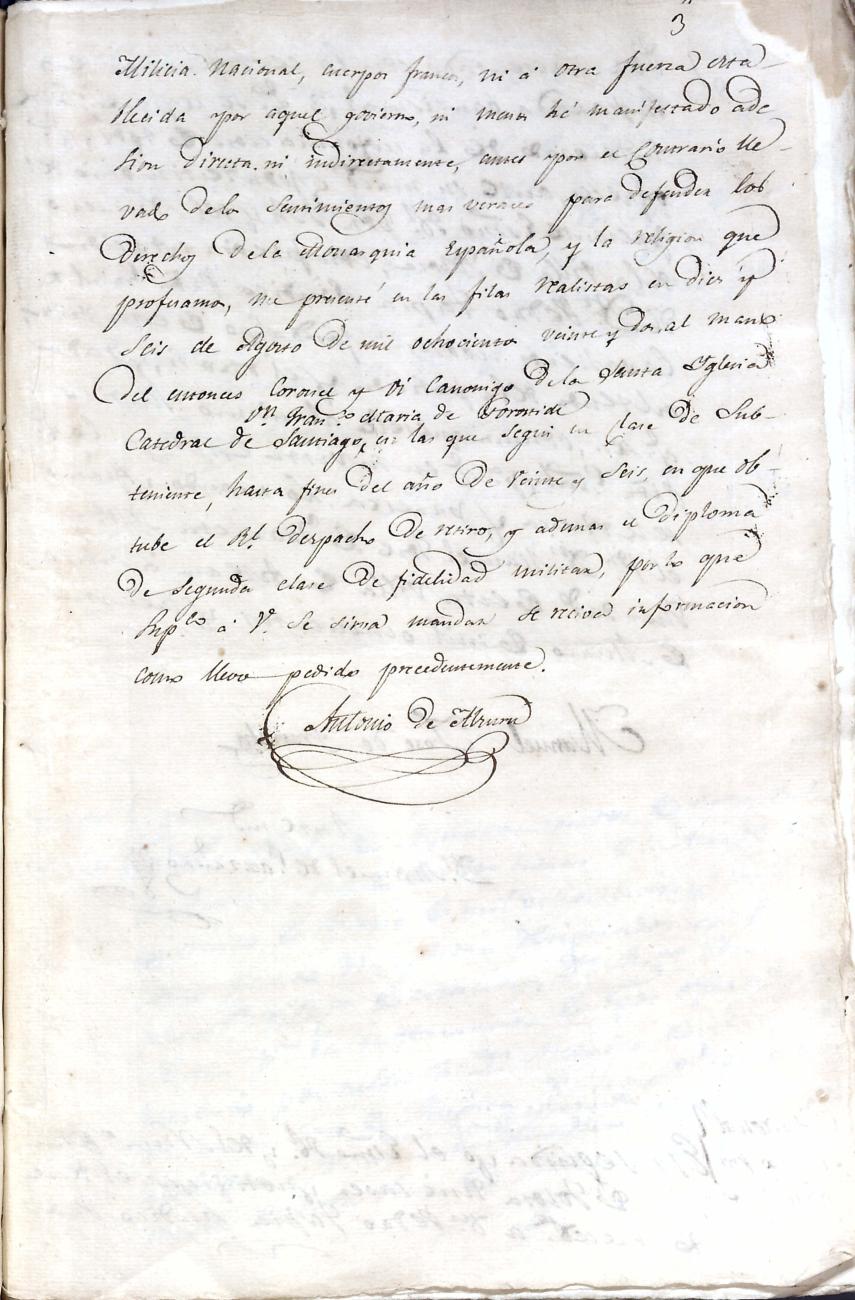 3
Milicia Nacional, cuerpos francos, ni á otra fuerza esta-
blecida por aquel govierno, ni menos hé manifestado ade-
sion directa ni indirectamente, antes por el contrario lle-
vado de los sentimientos mas veraces para defender los
Derechos de la Monarquia Española, y la religion que
profesamos, me presenté en las filas realistas en diez y
seis de Agosto de mil ochocientos veinte y dos, al mando
del entonces Coronel y Canonigo de la Santa Yglesia
Dn. Franco. Maria de
Catedral de Santiago, en las que segui en clase de Sub-
teniente, hasta fines del año de veinte y seis, en que ob-
tube el Rl. despacho de retiro, y ademas el diploma
de segunda clase de fidelidad militar, por lo que
Supco. á V. se sirva mandar se reciva informacion
como llevo pedido precedentemente.
Antonio de